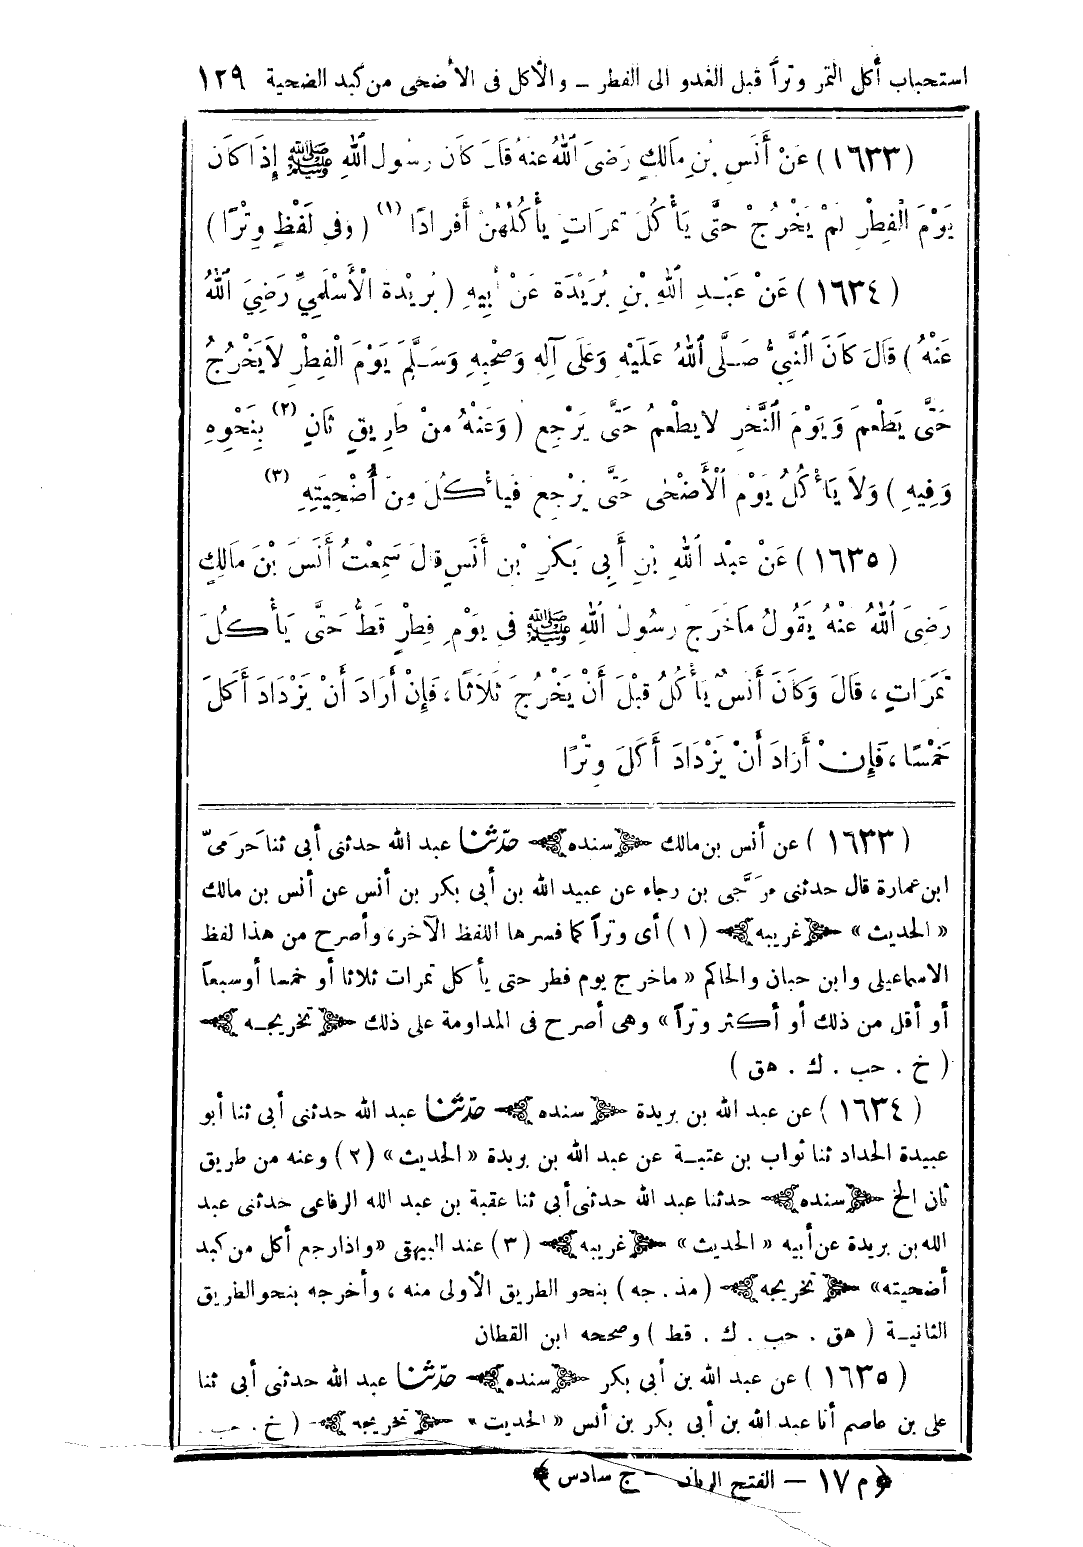 استحباب أكل التمر وتراً قبل الغدو الى الفطر – والأكل فى الأضحى من كبد الضحية ١٢٩
(١٦٣٣) عَنْ أَنَسِ بْنِ مَالِكٍ رَضِىَ اللهُ عَنْهُ قَالَ كَانَ رَسُولُ اللهِ ﷺ إِذَا كَانَ
يَوْمَ الْفِطْرِ لَمْ يَخْرُجْ حَتَّى يَأْكُلَ تَمَرَاتٍ يَأْكُلُهُنَّ أَفْرَادًا (١) (وَفِى لَفْظٍ وِتْرًا)
(١٦٣٤) عَنْ عَبْدِ اللهِ بْنِ بُرَيْدَةَ عَنْ أَبِيهِ (بُرَيْدَةَ الْأَسْلَمِيِّ رَضِيَ اللهُ
عَنْهُ) قَالَ كَانَ النَّبِيُّ صَلَّى اللهُ عَلَيْهِ وَعَلَى آلِهِ وَصَحْبِهِ وَسَلَّمَ يَوْمَ الْفِطْرِ لَا يَخْرُجُ
حَتَّى يَطْعَمَ وَيَوْمَ النَّحْرِ لَا يَطْعَمُ حَتَّى يَرْجِعَ (وَعَنْهُ مِنْ طَرِيقٍ ثَانٍ (٢) بِنَحْوِهِ
وَفِيهِ) وَلَا يَأْكُلُ يَوْمَ الْأَضْحَى حَتَّى يَرْجِعَ فَيَأْكُلَ مِنْ أُضْحِيَتِهِ (٣)
(١٦٣٥) عَنْ عَبْدِ اللهِ بْنِ أَبِى بَكْرِ بْنِ أَنَسٍ قَالَ سَمِعْتُ أَنَسَ بْنَ مَالِكٍ
رَضِىَ اللهُ عَنْهُ يَقُولُ مَا خَرَجَ رَسُولُ اللهِ ﷺ فِى يَوْمِ فِطْرٍ قَطُّ حَتَّى يَأْكُلَ
تَمَرَاتٍ ، قَالَ وَكَانَ أَنَسٌ يَأْكُلُ قَبْلَ أَنْ يَخْرُجَ ثَلَاثًا ، فَإِنْ أَرَادَ أَنْ يَزْدَادَ أَكَلَ
خَمْسًا ، فَإِنْ أَرَادَ أَنْ يَزْدَادَ أَكَلَ وِتْرًا
(١٦٣٣) عن أنس بن مالك ﴿سنده﴾ حدّثنا عبد الله حدثنى أبى ثنا حَرَمىّ
ابن عمارة قال حدثنى مرَجَّى بن رجاء عن عبيد الله بن أبى بكر بن أنس عن أنس بن مالك
« الحديث » ﴿غريبه﴾ (١) أى وتراً كما فسرها اللفظ الآخر، وأصرح من هذا لفظ
الاسماعيلى وابن حبان والحاكم « ماخرج يوم فطر حتى يأكل تمرات ثلاثا أو خمسا أو سبعاً
أو أقل من ذلك أو أكثر وتراً » وهى أصرح فى المداومة على ذلك ﴿تخريجه﴾
(خ . حب . ك . هق)
(١٦٣٤) عن عبد الله بن بريدة ﴿سنده﴾ حدّثنا عبد الله حدثنى أبى ثنا أبو
عبيدة الحداد ثنا ثواب بن عتبة عن عبد الله بن بريدة « الحديث » (٢) وعنه من طريق
ثان الخ ﴿سنده﴾ حدثنا عبد الله حدثنى أبى ثنا عقبة بن عبد الله الرفاعى حدثنى عبد
الله بن بريدة عن أبيه « الحديث » ﴿غريبه﴾ (٣) عند البيهقى «واذا رجع أكل من كبد
أضحيته» ﴿تخريجه﴾ (مذ . جه) بنحو الطريق الأولى منه ، وأخرجه بنحو الطريق
الثانية (هق . حب . ك . قط) وصححه ابن القطان
(١٦٣٥) عن عبد الله بن أبى بكر ﴿سنده﴾ حدّثنا عبد الله حدثنى أبى ثنا
على بن عاصم أنا عبد الله بن أبى بكر بن أنس « الحديث » ﴿تخريجه﴾ (خ . حب .
﴿م ١٧ – الفتح الربانى – ج سادس﴾